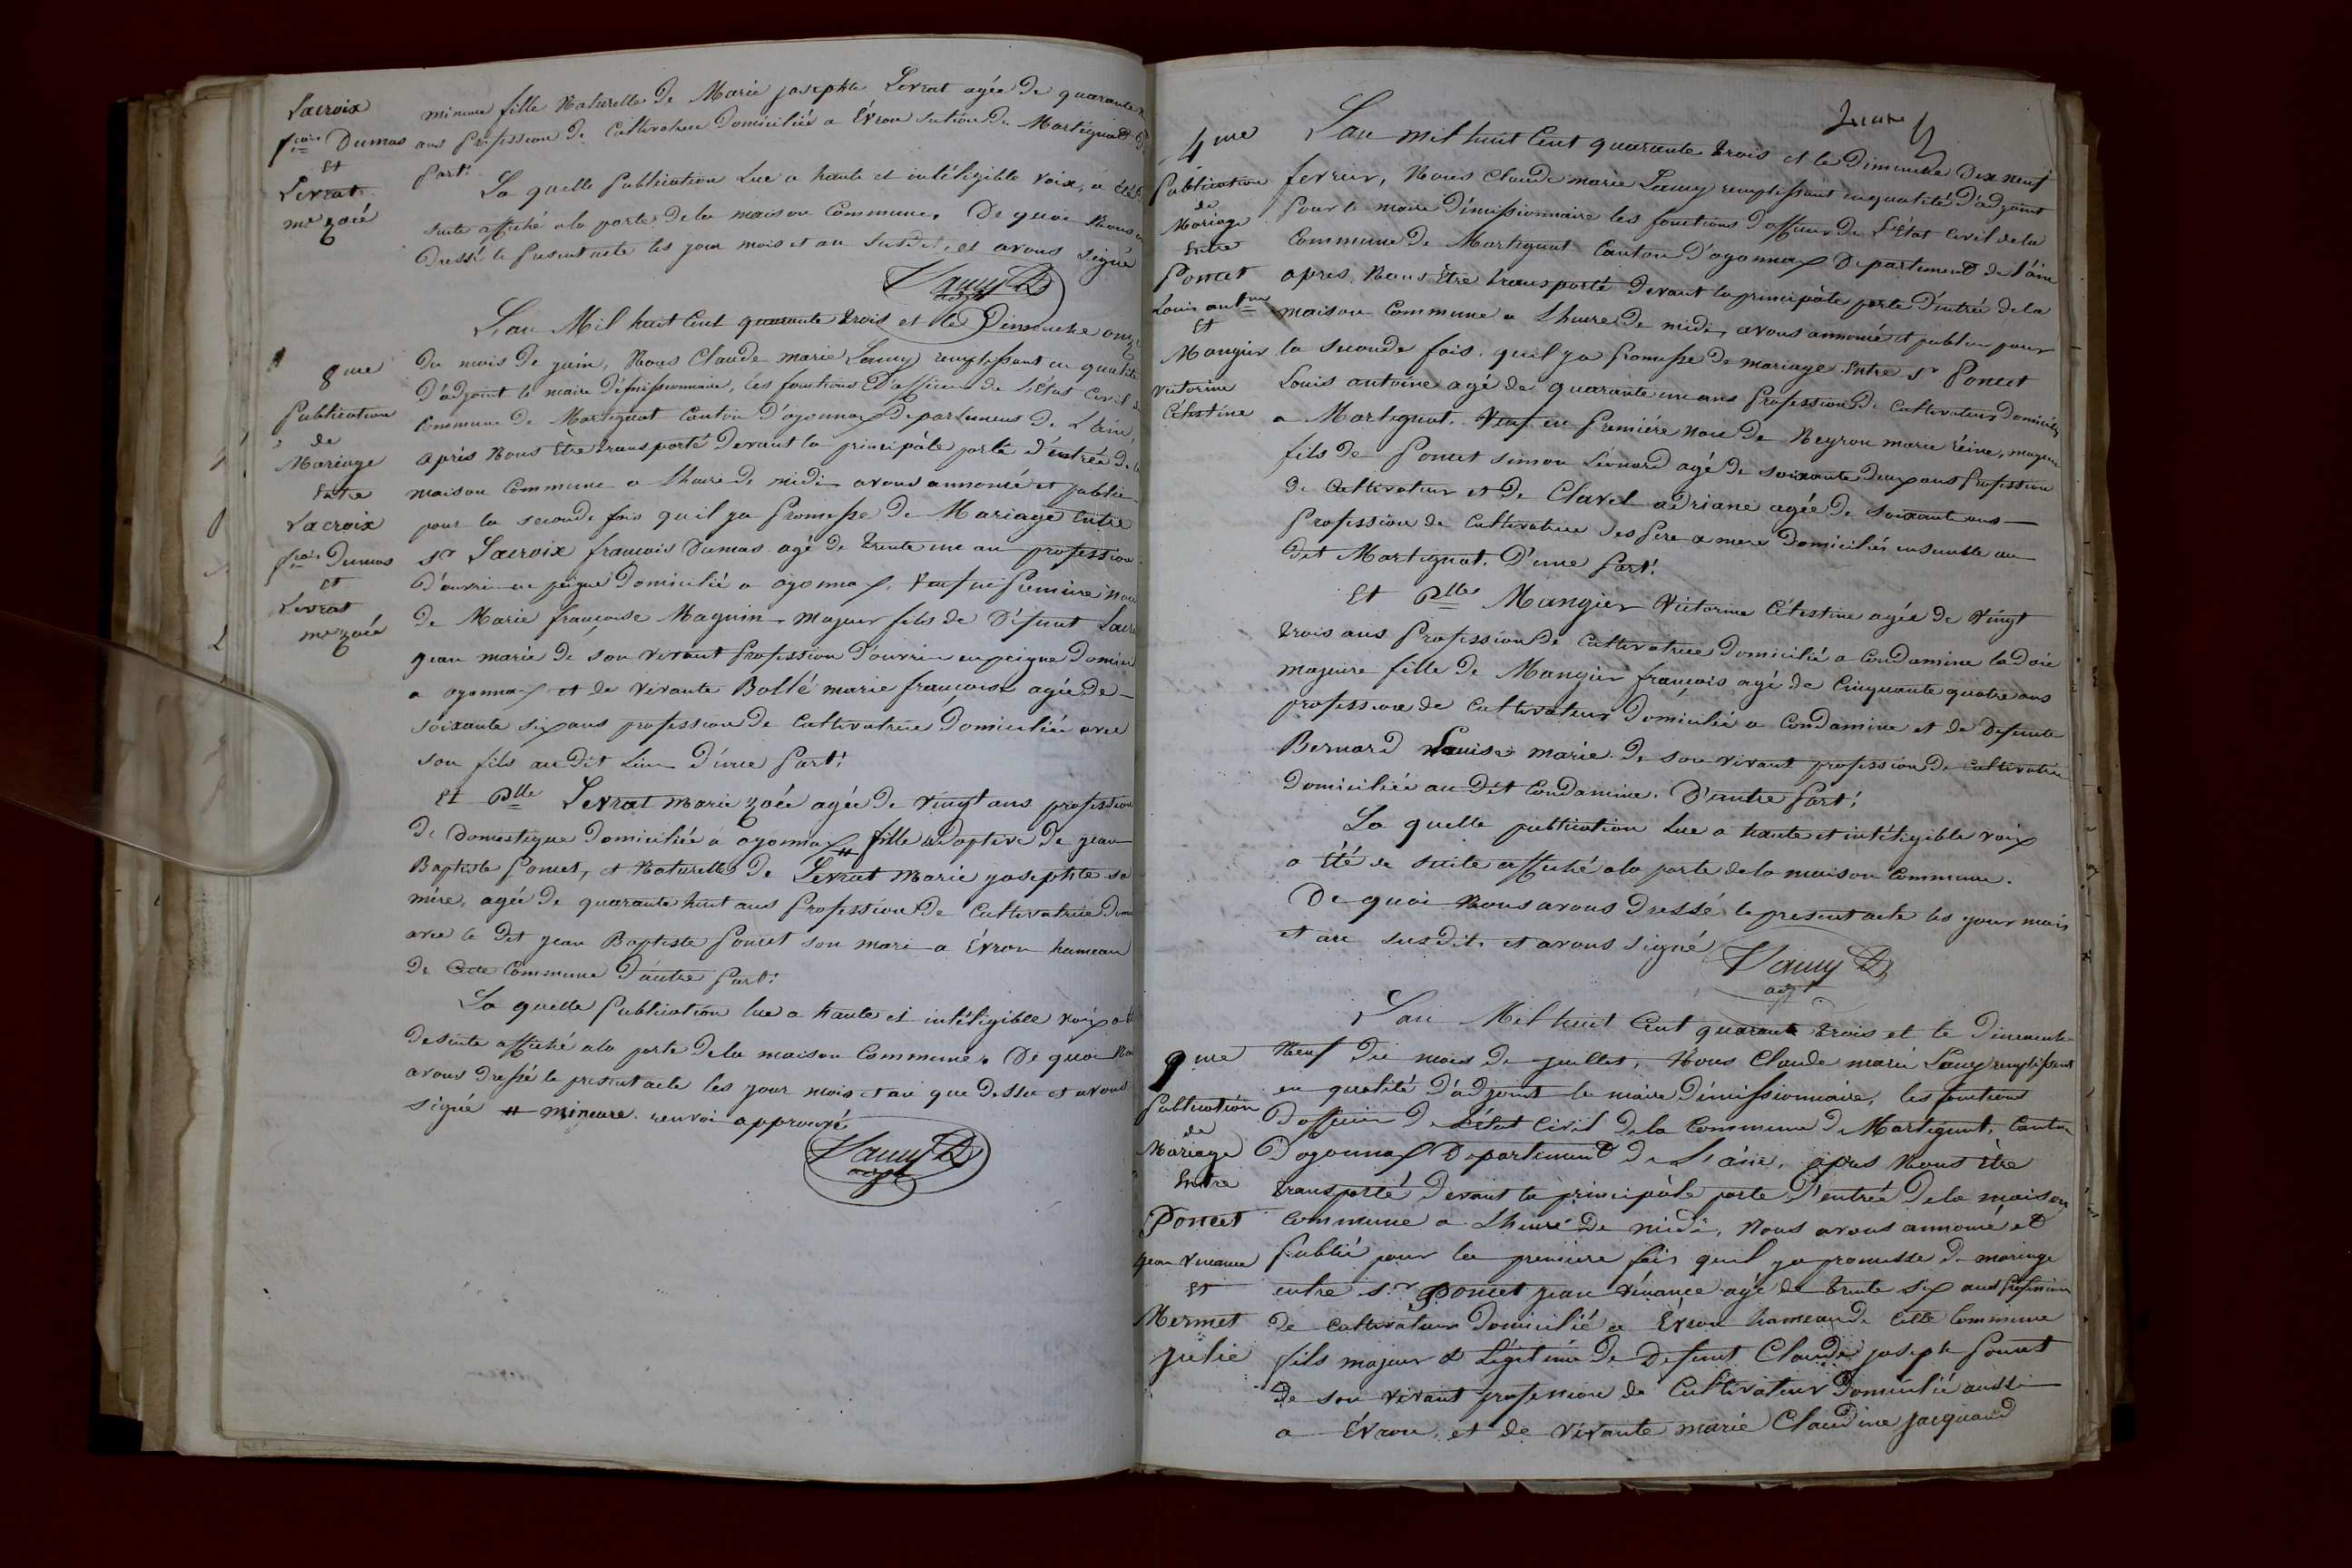 Lacroix
f.cois Dumas
et
Levrat
mie zoée
mineure fille Naturelle de Marie josephte Levrat agée de quarante
ans profession de Cultivatrice Domiciliée a Évron section de Martignat
part.
La quelle publication Lue a haute et intéligible voix, a été
suite affiché a la porte de la maison Commune. De quoi Nous
Dressé le présent acte les jour mois et an susdit, et avons signé
Lauy
adjt
8me
Publication
de
Mariage
Entre
Lacroix
f.cois Dumas
et
Levrat
mie zoée
L'an Mil huit Cent quarante trois et le Dimanche onze
du mois de juin, Nous Claude marie Lauy remplissant en qualité
d'adjoint le maire démissionnaire, les fonctions d'officier de l'Etat Civil
Commune de Martignat Canton d'oyonnax Departement de L'ain,
après Nous Etre transporté devant la principâle porte d'éntrée de
maison Commune a Lheure de midi avons annoncé et publié
pour la seconde fois qu'il ya promesse de Mariage Entre
sr Lacroix francois Dumas agé de trente un an profession
D'ouvrier en peigne Domicilié a oyonnax, Veuf en premiere Nou
de Marie françoise Maguin majeur fils de Défunt Lacro
jean marie de son vivant profession D'ouvrier en peigne Domici
a oyonnax et de vivante Bollé marie françoise agée de
soixante six ans profession de Cultivatrice Domiciliée avec
son fils au dit Lieu D'une part.
Et Dlle Levrat Marie zoée agée de vingt ans profession
de Domestique Domiciliée a oyonnax # fille adoptive de jean
Baptiste Poncet, et Naturelle de Levrat Marie josephte sa
mère, agée de quarante huit ans profession de Cultivatrice Domi
avec le dit jean Baptiste Poncet son mari a Évron hameau
de Cette Commune D'autre part.
La quelle publication lue a haute et intéligible voix a é
de suite affiché a la porte de la maison Commune. De quoi No
avons dressé le present acte les jour mois et an que dessu et avons
signé # mineure renvoi approuvé
Lauy
adjt
4me
Publication
de
Mariage
Entre
Poncet
Louis antne
et
Mangier
victorine
Célestine
L'an mil huit Cent quarante trois et le Dimanche Dix neuf
fevrier, Nous Claude marie Lauy remplissant en qualité d'adjoint
pour le maire démissionnaire les fonctions d'officier de L'état Civil de la
Commune de Martignat Canton d'oyonnax Departement de l'ain
apres Nous Etre transporté devant la principâle porte d'entrée de la
maison Commune a Lheure de midi, avons annoncé et publié pour
la seconde fois, quil ya promesse de mariage Entre sr Poncet
Louis antoine agé de quarante un ans profession de Cultivateur domicilié
a Martignat. Veuf en premiére Nou de Neyron marie réine, majeur
fils de Poncet simon Léonard agé de soixante deux ans profession
de Cultivateur et de Clavel adriane agée de soixante ans
profession de Cultivatrice ses pere & mere Domiciliés ensemble au
dit Martignat. D'une part.
Et Dlle Mangier Victorine Célestine agée de vingt
trois ans profession de Cultivatrice Domicilié a Condamine ladoie
majeure fille de Mangier françois agé de Cinquante quatre ans
profession de Cultivateur Domicilié a Condamine et de Defunte
Bernard Louise marie de son vivant profession de Cultivatrice
Domiciliée au dit Condamine. D'autre part.
La quelle publication Lue a haute et intéligible voix
a été de suite affiché a la porte de la maison Commune.
De quoi Nous avons Dressé le present acte les jour mois
et an susdit, et avons signé
Lauy
adjt
9me
Publication
de
Mariage
Entre
Poncet
jean Venance
Et
Mermet
julie
L'an Mil huit Cent quarante trois et le Dimanche
Neuf du mois de juillet, Nous Claude marie Lauy remplissant
en qualité d'adjoint le maire démissionnaire, les fonctions
D'officier de L'état Civil de la Commune de Martignat, Canton
D'oyonnax Departement de L'ain, après Nous être
transporté devant la principâle porte d'entrée de la maison
Commune a Lheure de midi, Nous avons annoncé et
publié pour la premiere fois quil ya promesse de mariage
entre sr. Poncet jean vénance agé de trente six ans profession
de Cultivateur Domicilié a Évron hameau de Cette Commune
fils majeur & Légitime de Defunt Claude joseph Poncet
de son vivant profession de Cultivateur Domicilié aussi
a Évron, et de vivante marie Claudine jacquand